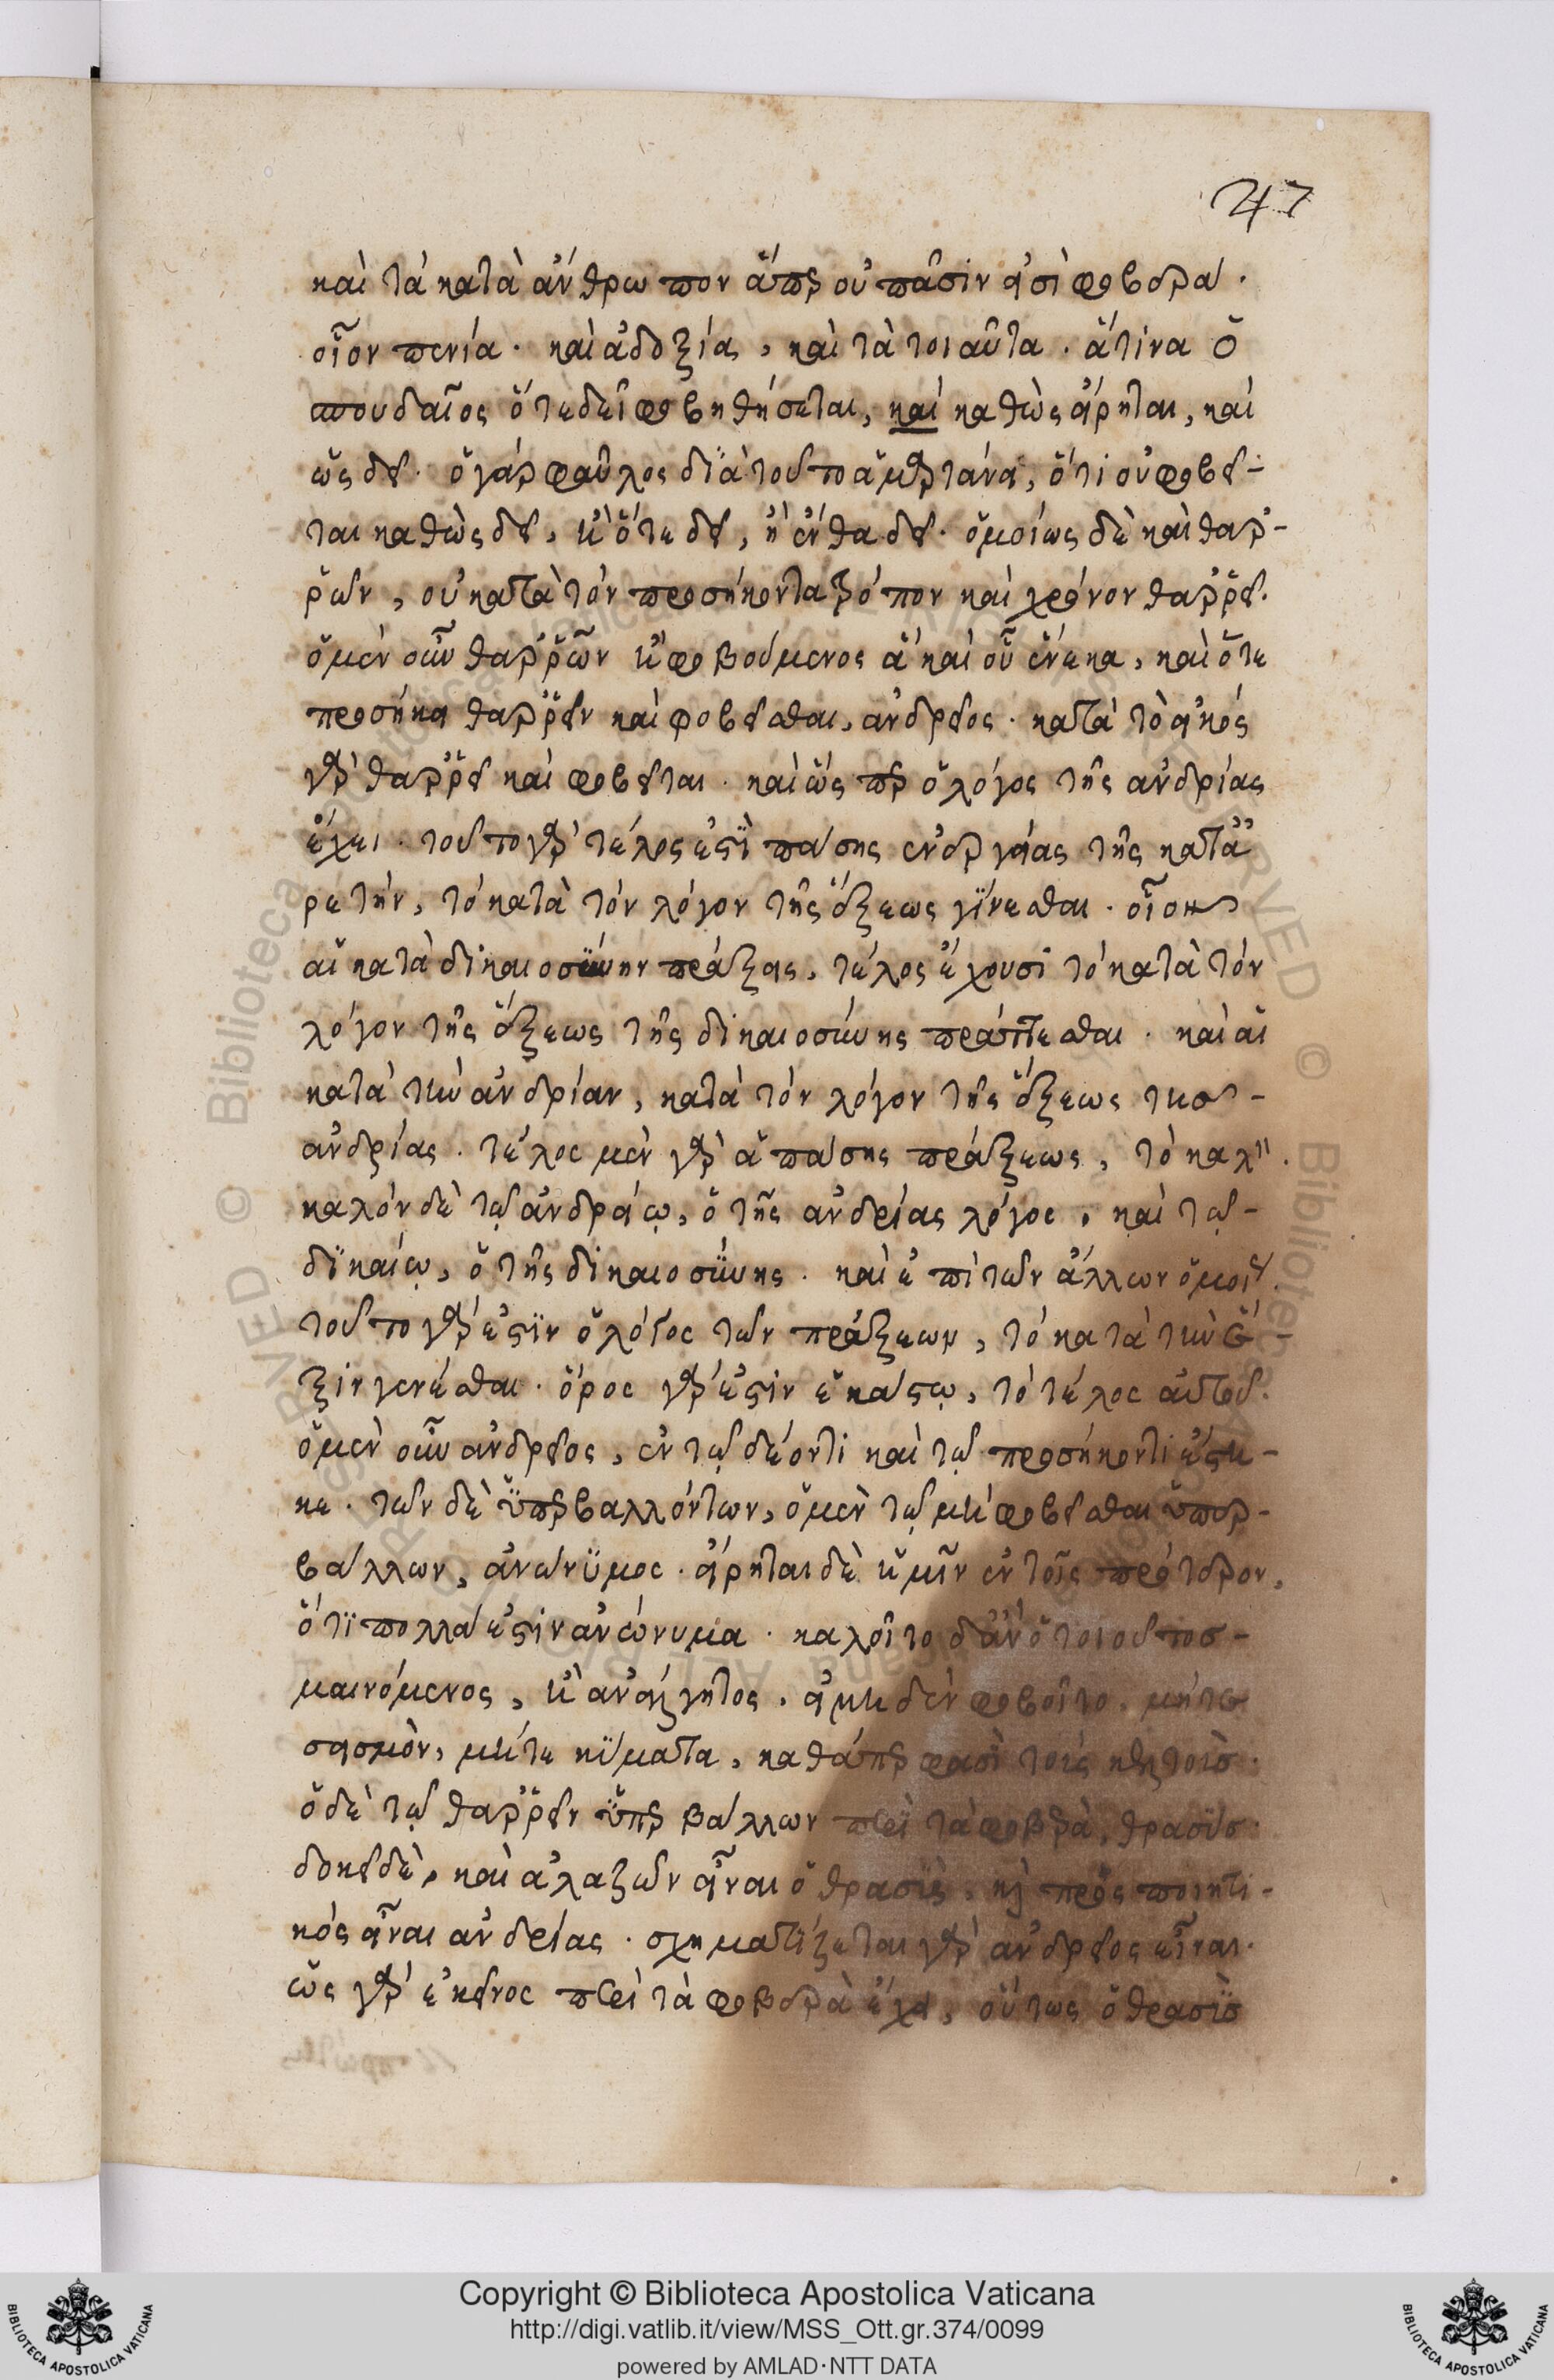 47
καὶ τὰ κατὰ ἄνθρωπον ἅπερ οὐ πᾶσίν εἰσὶ φοβερά·
οἷον πενία· καὶ ἀδοξία, καὶ τὰ τοιαῦτα· ἅτινα ὁ
σπουδαῖος ὅτε δεῖ φοβηθήσεται, καὶ καθὼς εἴρηται, καὶ
ὡς δεῖ· ὁ γὰρ φαῦλος διὰ τοῦτο ἁμαρτάνει, ὅτι οὐ φοβεῖ-
ται καθὼς δεῖ, ἢ ὅτε δεῖ, ἢ ἔνθα δεῖ· ὁμοίως δὲ καὶ θαρ-
ρῶν, οὐ κατὰ τὸν προσήκοντα τρόπον καὶ χρόνον θαρρεῖ·
ὁ μὲν οὖν θαρρῶν ἢ φοβούμενος ἃ καὶ οὗ ἕνεκα, καὶ ὅτε
προσήκει θαρρεῖν καὶ φοβεῖσθαι, ἀνδρεῖος· κατὰ τὸ εἰκός
γὰρ θαρρεῖ καὶ φοβεῖται· καὶ ὥς περ ὁ λόγος τῆς ἀνδρίας
ἔχει· τοῦτο γὰρ τέλος ἐστὶ πάσης ἐνεργείας τῆς κατὰ ἀ
ρετήν, τὸ κατὰ τὸν λόγον τῆς ἕξεως γίνεσθαι· οἷον
αἱ κατὰ δικαιοσύνην πράξεις, τέλος ἔχουσι τὸ κατὰ τὸν
λόγον τῆς ἕξεως τῆς δικαιοσύνης πράττεσθαι· καὶ αἱ
κατὰ τὴν ἀνδρίαν, κατὰ τὸν λόγον τῆς ἕξεως τῆς-
ἀνδρίας· τέλος μὲν γὰρ ἁπάσης πράξεως, τὸ καλ·
καλὸν δὲ τῷ ἀνδρείῳ, ὁ τῆς ἀνδρίας λόγος, καὶ τῷ-
δικαίῳ, ὁ τῆς δικαιοσύνης· καὶ ἐπὶ τῶν ἄλλων ὁμοί·
τοῦτο γὰρ ἐστὶν ὁ λόγος τῶν πράξεων, τὸ κατὰ τὴν ἕ-
ξιν γενέσθαι· ὅρος γὰρ ἐστὶν ἑκάστῳ, τὸ τέλος αὐτοῦ·
ὁ μὲν οὖν ἀνδρεῖος, ἐν τῷ δέοντι καὶ τῷ προσήκοντι ἕστη-
κε· τῶν δὲ ὑπερβαλλόντων, ὁ μὲν τῷ μὴ φοβεῖσθαι ὑπερ-
βάλλων, ἀνώνυμος· εἴρηται δὲ ἡμῖν ἐν τοῖς πρότερον,
ὅτι πολλά ἐστὶν ἀνώνυμα· καλοῖτο δ' ἂν ὁ τοιοῦτος-
μαινόμενος, ἢ ἀνάλγητος, εἰ μηδὲν φοβοῖτο, μήτε
σεισμὸν, μήτε κύματα, καθάπερ φασὶ τοὺς κελτούς·
ὁ δὲ τῷ θαρρεῖν ὑπερβάλλων περὶ τὰ φοβερὰ, θρασύς·
δοκεῖ δὲ, καὶ ἀλαζὼν εἶναι ὁ θρασὺς, καὶ προσποιητι-
κός εἶναι ἀνδρίας· σχηματίζεται γὰρ ἀνδρεῖος εἶναι·
ὡς γὰρ ἐκεῖνος περὶ τὰ φοβερὰ ἔχει, οὕτως ὁ θρασὺς
Copyright © Biblioteca Apostolica Vaticana
http://digi.vatlib.it/view/MSS_Ott.gr.374/0099
powered by AMLAD·NTT DATA
BIBLIOTECA APOSTOLICA VATICANA
BIBLIOTECA APOSTOLICA VATICANA